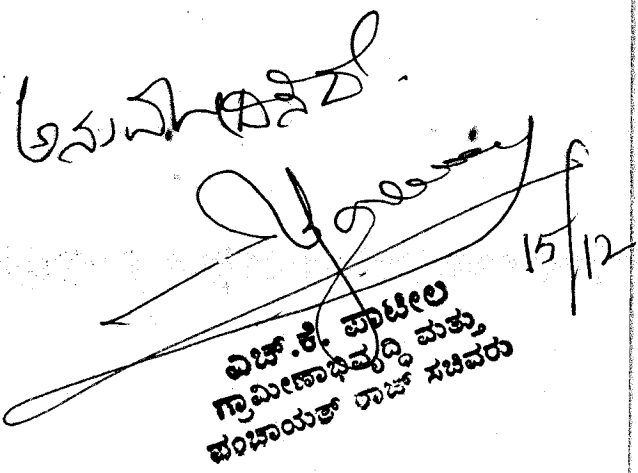 ಅನುಮೋದಿಸಿದೆ.
15/12
ಎಚ್.ಕೆ. ಪಾಟೀಲ
ಗ್ರಾಮೀಣಾಭಿವೃದ್ಧಿ ಮತ್ತು
ಪಂಚಾಯತ್ ರಾಜ್ ಸಚಿವರು